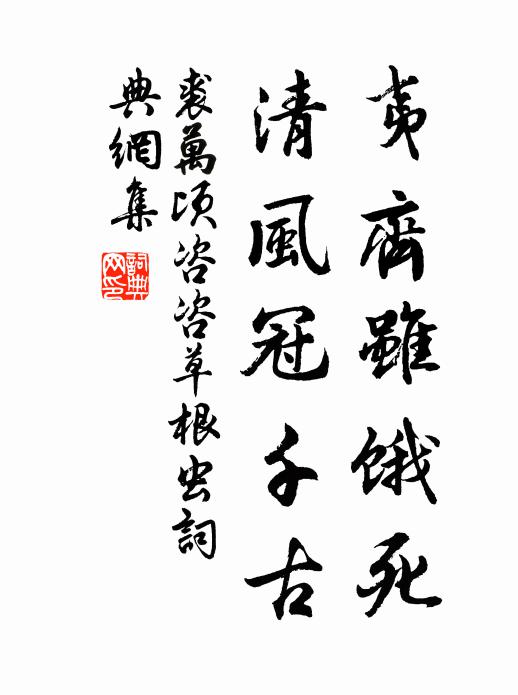 夷齊雖餓死
清風冠千古
裘萬頃咨咨草根虫詞
典網集
詞典网印